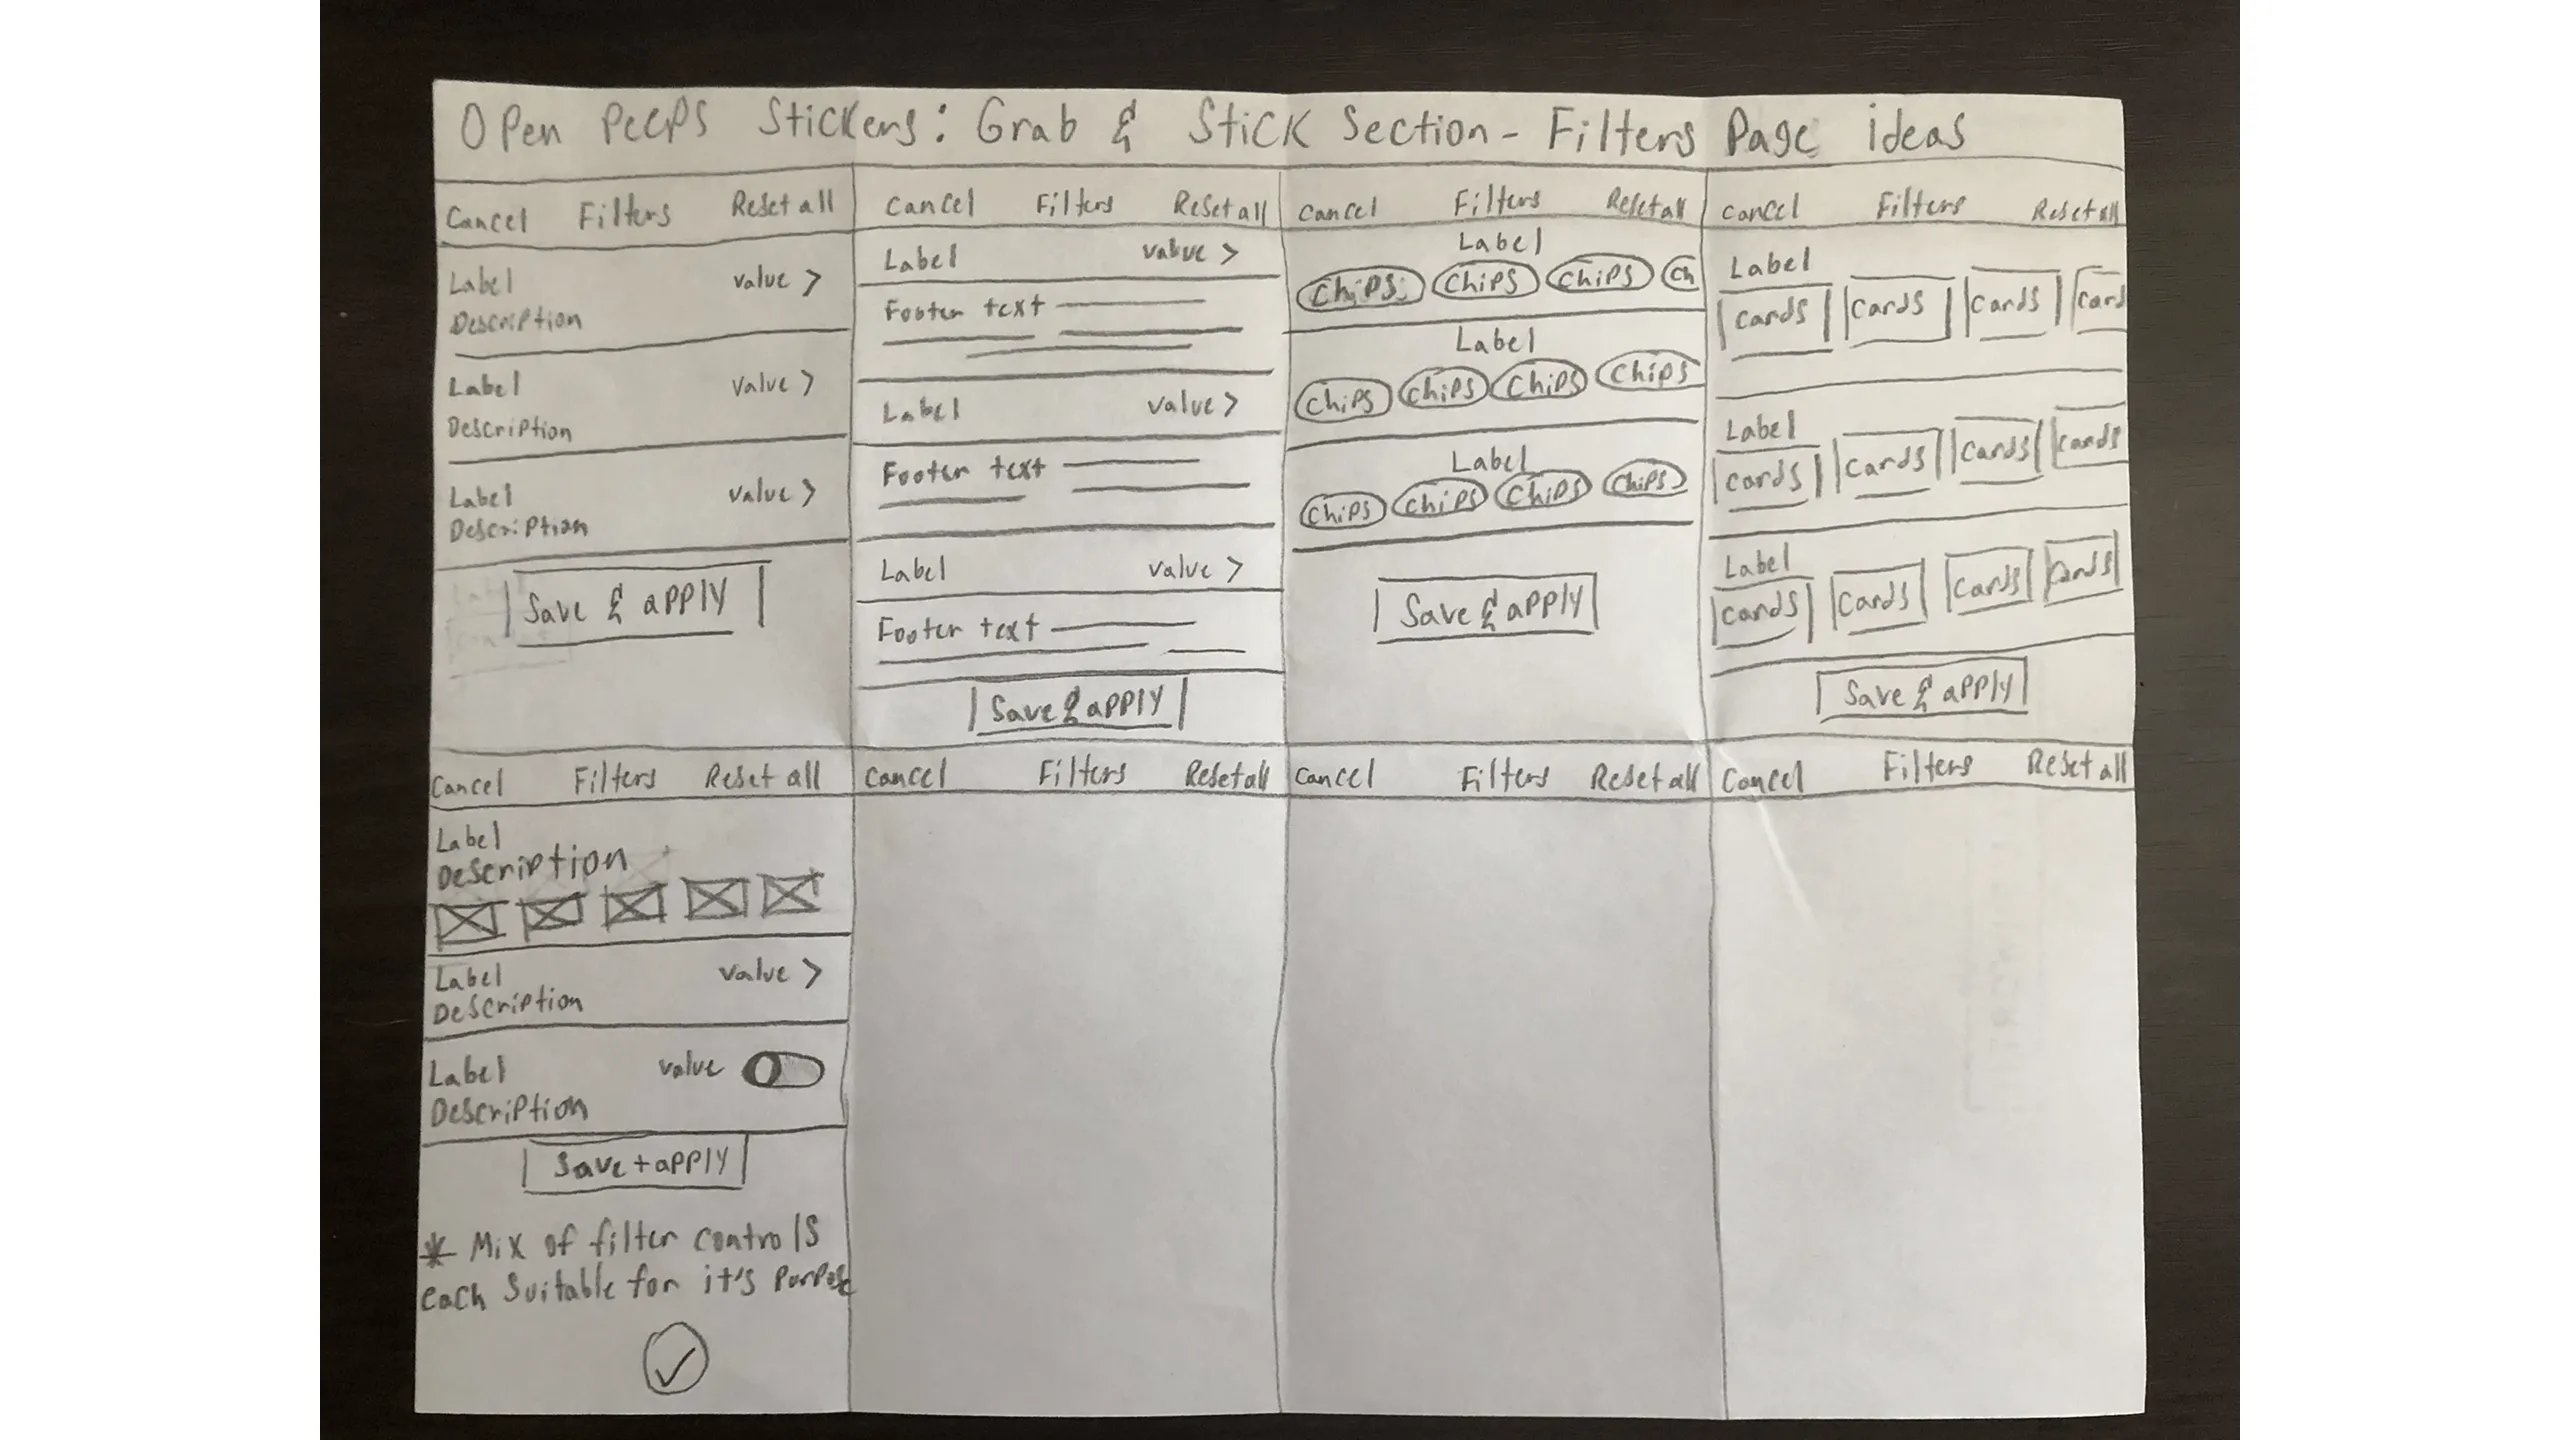 Open Peeps Stickers: Grab & Stick Section - Filters Page ideas
Cancel Filters Reset all
Label value >
Description
Label value >
Description
Label value >
Description
Save & apply
Cancel Filters Reset all
Label value >
Footer text
Label value >
Footer text
Label value >
Footer text
Save & apply
Cancel Filters Reset all
Label
Chips Chips Chips Ch
Label
Chips Chips Chips Chips
Label
Chips Chips Chips Chips
Save & apply
Cancel Filters Reset all
Label
Cards Cards Cards Card
Label
Cards Cards Cards Cards
Label
Cards Cards Cards Cards
Save & apply
Cancel Filters Reset all
Label
Description
Label value >
Description
Label value
Description
Save + apply
* Mix of filter controls
each suitable for it's purpose
Cancel Filters Reset all
Cancel Filters Reset all
Cancel Filters Reset all